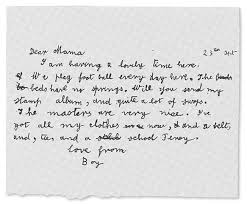 Dear Mama 23rd Sept
I am having a lovely time here.
We play foot ball every day here. The
beds have no springs. Will you send my
stamp album, and quite a lot of swops.
The masters are very nice. I've
got all my clothes now, and a belt,
and, tie, and a school Jersey.
love from
Boy